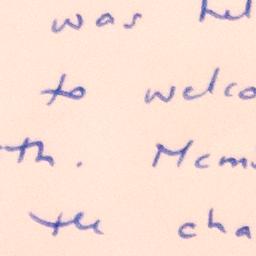 was hel
to welco
th. Mem
the cha